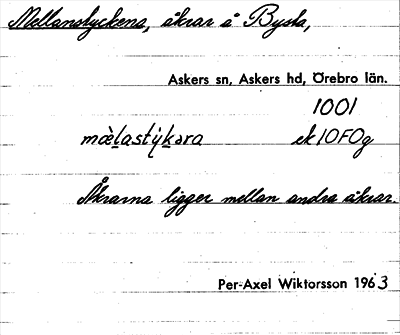 Mellanstyckena, åkrar å Bysta,
Askers sn, Askers hd, Örebro län.
1001
ek 10F0g
Åkrarna ligger mellan andra åkrar.
Per-Axel Wiktorsson 1963